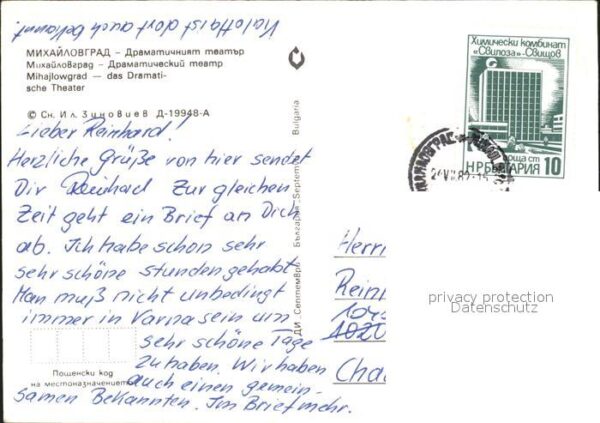 Kalofta ist dort auch bekannt.
МИХАЙЛОВГРАД – Драматичният театър
Михайловград – Драматический театр
Mihajlowgrad – das Dramati-
sche Theater
© Сн. Ил. Зиновиев Д-19948-А
Lieber Reinhard!
Herzliche Grüße von hier sendet
Dir Reinhard Zur gleichen
Zeit geht ein Brief an Dich
ab. Ich habe schon sehr
sehr schöne stunden gehabt
Man muß nicht unbedingt
immer in Varna sein um
sehr schöne Tage
zu haben. Wir haben
auch einen gemein-
samen Bekannten. Im Brief mehr.
Пощенски код
на местоназначението
ДИ „Септември" България „Septemvri" Bulgaria
Химически комбинат
„Свилоза"–Свищов
поща ст
НР БЪЛГАРИЯ 10
МИХАЙЛОВГРАД
Herrn
Rein
1020
Cha
privacy protection
Datenschutz